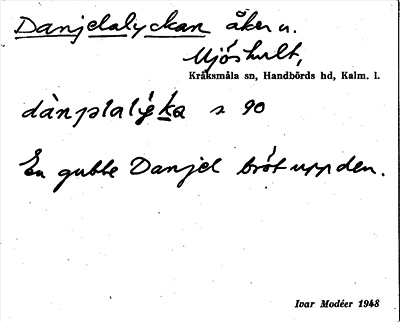 Danjelalyckan åker u.
Mjöshult,
Kråksmåla sn, Handbörds hd, Kalm. l.
dànjəlalỳka s 90
En gubbe Danjel bröt upp den.
Ivar Modéer 1948